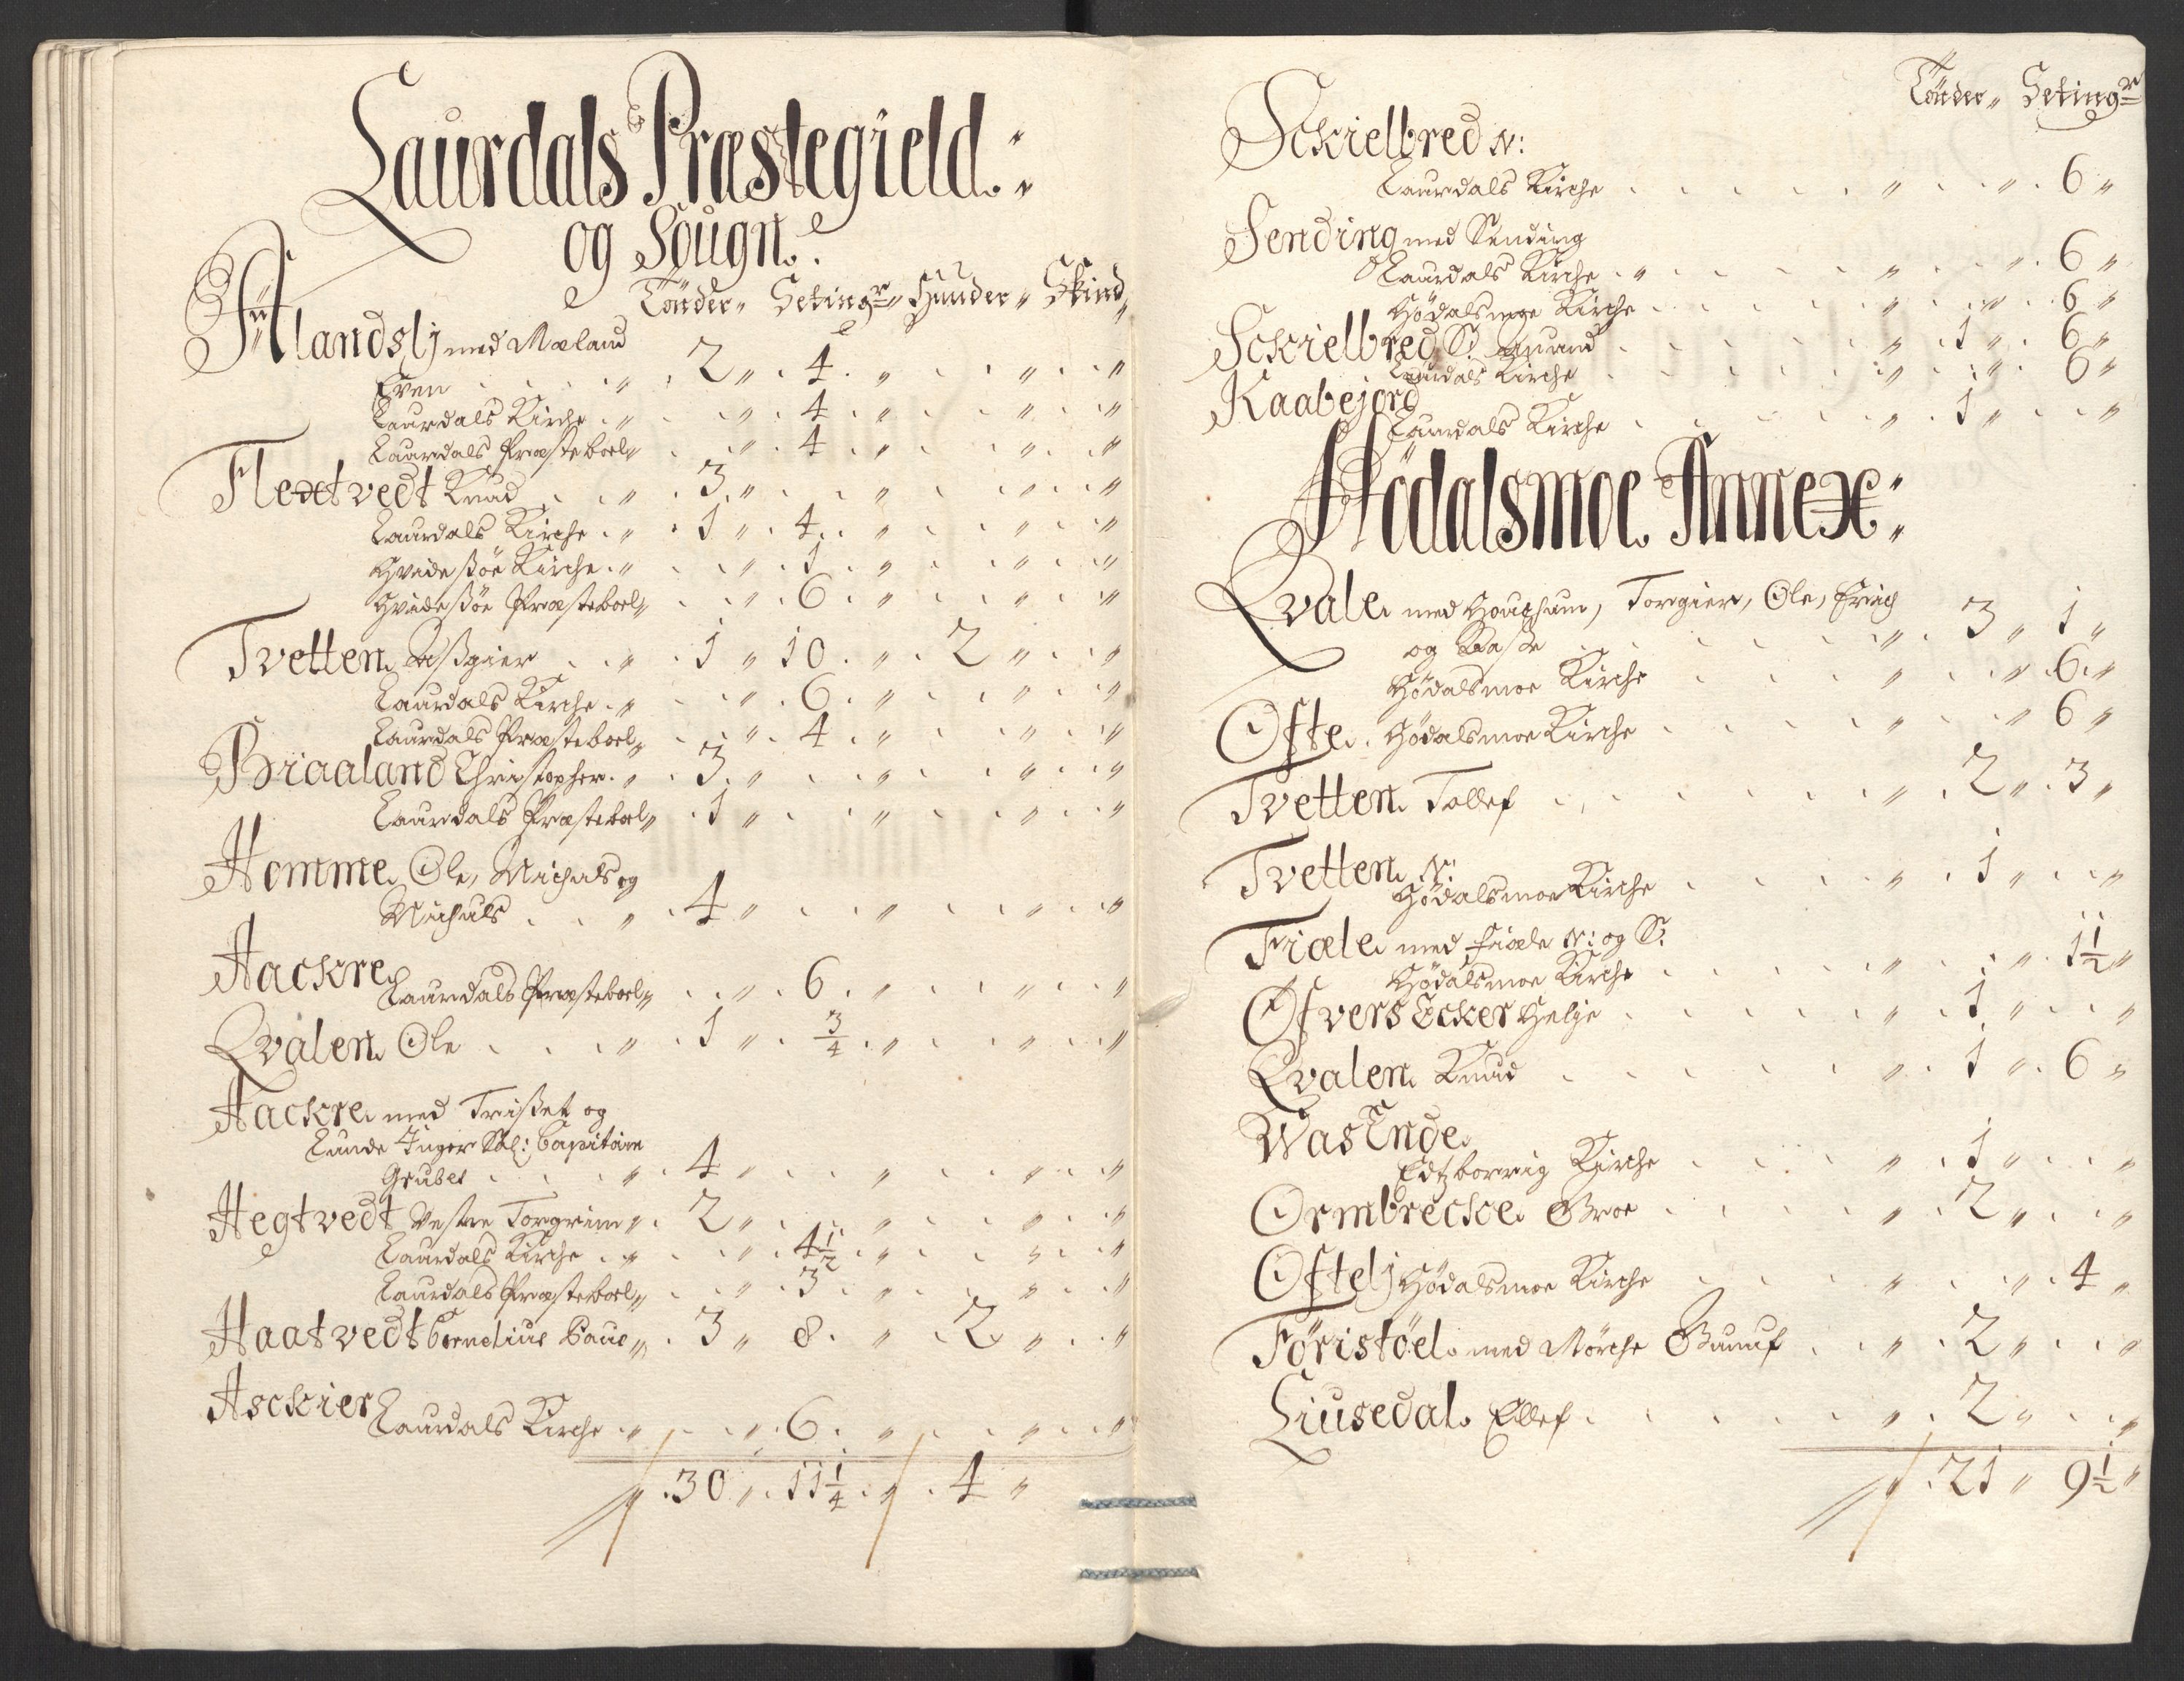 Laurdals Præstegield.
og Sougn.
Tönder „ Setingr „ Huuder „ Skind „
Aalandslj med Mæland
Even . . . . „ . 2 „ . 4 . „ . . „ . . „
Laurdals Kirche . „ . . „ . 4 . „ . . „ . . „
Laurdals Præsteboel „ . . „ . 4 . „ . . „ . . „
Flextvedt Knud . . „ . 3 „ . . „ . . „ . . „
Laurdals Kirche . „ . 1 „ . 4 . „ . . „ . . „
Hvidesøe Kirche . „ . . „ . 1 . „ . . „ . . „
Hvidesøe Præsteboel „ . . „ . 6 . „ . . „ . . „
Tvetten Aßgier . . „ . 1 „ 10 . „ . 2 „ . . „
Laurdals Kirche . „ . . „ . 6 . „ . . „ . . „
Laurdals Præsteboel „ . . „ . 4 . „ . . „ . . „
Braaland Christopher . „ . 3 „ . . „ . . „ . . „
Laurdals Præsteboel „ . 1 „ . . „ . . „ . . „
Homme Ole, Michals og
Michuls . . „ . 4 „ . . „ . . „ . . „
Aackre
Laurdals Præsteboel „ . . „ . 6 . „ . . „ . . „
Qvalen Ole . . . „ . 1 „ . 3/4 . „ . . „ . . „
Aackre med Trißet og
Lunde Inger Sal: Capitain
Grubes . . . „ . 4 „ . . „ . . „ . . „
Hegtvedt Vestre Torgrim „ . 2 „ . . „ . . „ . . „
Laurdals Kirche . „ . . „ . 4 1/2 . „ . . „ . . „
Laurdals Præsteboel „ . . „ . 3 . „ . . „ . . „
Haatvedt Cornelius Paus „ . 3 „ 8 . „ . 2 „ . . „
Asckier
Laurdals Kirche . „ . . „ . 6 . „ . . „ . . „
„ . 30 „ . 11 1/4 . „ . 4 „
Tönder „ Setingr
Sckielbred N:
Laurdals Kirche . . . . . . „ . . „ . 6 „
Sending med Sending
Laurdals Kirche . „ . . . . „ . . „ . 6 „
Hödalsmoe Kirche . . . . . „ . . „ . 6 „
Sckielbred S: Amund . . . . „ . 1 „ . 6 „
Laurdals Kirche . . . . . „ . . „ . 6 „
Kaabejord
Laurdals Kirche . . . . . „ . 1 „ . . „
Hödalsmoe Annex
Qvale med Houghum, Torgier, Ole, Erich
og Aase . . . . . . „ . 3 „ 1 „
Hödalsmoe Kirche . . . . „ . . „ . 6 „
Ofte. Hödalsmoe Kirche . . . . „ . . „ 6 „
Tvetten Tollef . . . . . . . „ . 2 „ . 3 „
Tvetten N:
Hödalsmoe Kirche . . . . „ . 1 „ . . „
Fiæle med Fiæle N: og S:
Hödalsmoe Kirche . . . . „ . . „ . 1 1/2 „
Ofvers Ecker Helje . . . . . „ . 1 „ . . „
Qvalen Knud . . . . . . „ . 1 „ . 6 „
Was Ende
Edtzborrig Kirche . . . . „ . 1 „ . . „
Ormbrecke Groe . . . . . „ . 2 „ . . „
Oftelj Hödalsmoe Kirche . . . . „ . . „ . 4 „
Föristöel med Mörche Gunuf . . „ . 2 „ . . „
Liusedal. Ellef . . . . . . „ . 2 „ . . „
„ . 21 „ 9 1/2 „